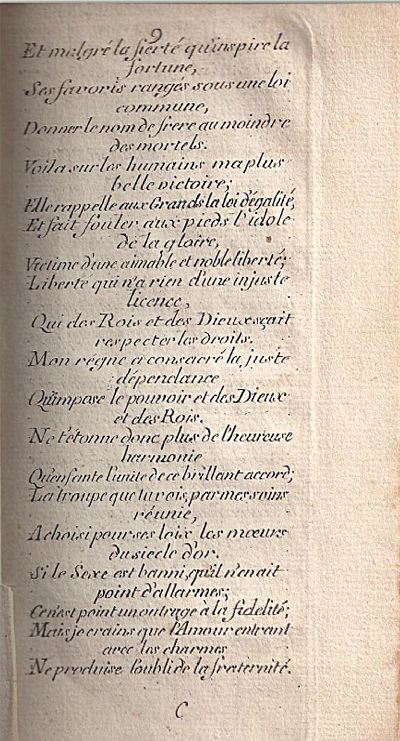 9
Et malgré la fierté qu'inspire la
fortune,
Ses favoris rangés sous une loi
commune,
Donner le nom de frere au moindre
des mortels.
Voila sur les humains ma plus
belle victoire;
Elle rappelle aux Grands la loi d'égalité,
Et fait fouler aux pieds l'idole
de la gloire,
Victime d'une aimable et noble liberté;
Liberté qui n'a rien d'une injuste
licence,
Qui des Rois et des Dieux sçait
respecter les droits.
Mon regne a consacré la juste
dépendance
Qu'impose le pouvoir et des Dieux
et des Rois.
Ne t'étonne donc plus de l'heureuse
harmonie
Qu'enfente l'unité de ce brillant accord;
La troupe que tu vois, par mes soins
réunie,
A choisi pour ses loix les mœurs
du siecle d'or.
Si le Sexe est banni, qu'il n'en ait
point d'allarmes;
Ce n'est point un outrage à la fidelité;
Mais je crains que l'Amour entrant
avec les charmes
Ne produise l'oubli de la fraternité.
C